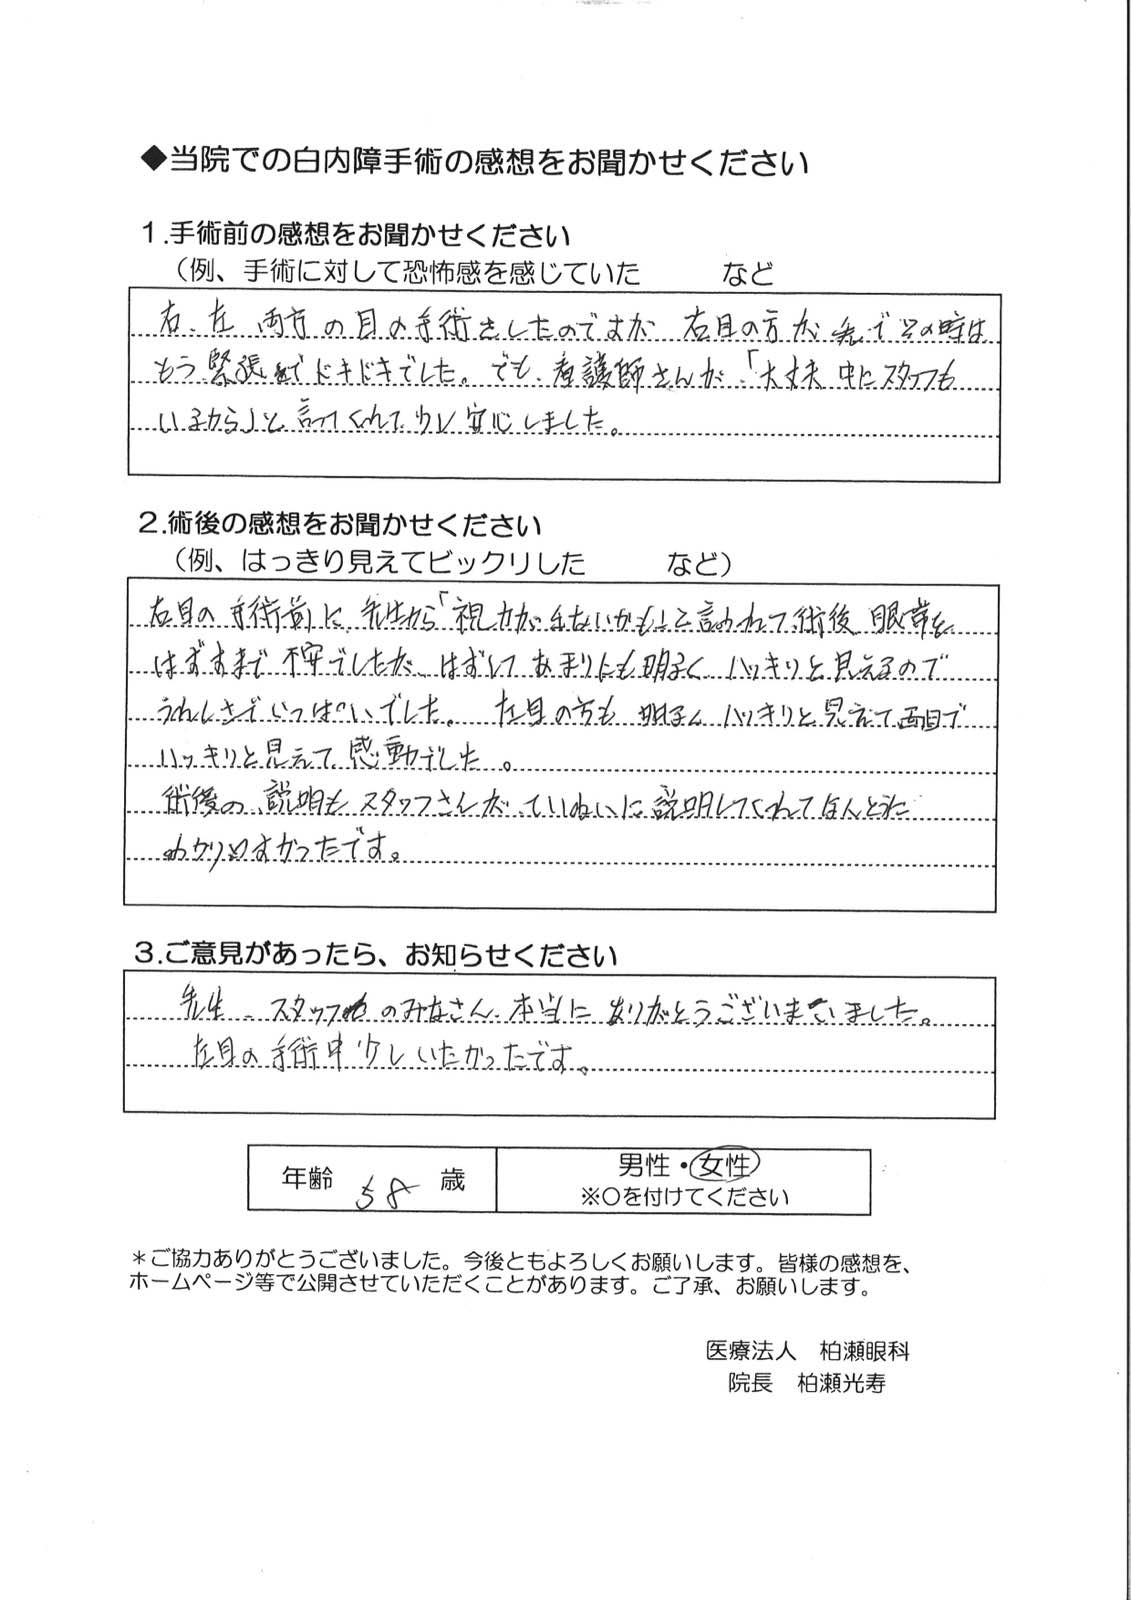 ◆当院での白内障手術の感想をお聞かせください
１.手術前の感想をお聞かせください
（例、手術に対して恐怖感を感じていた　　　など
右、左 両方の目の手術をしたのですが 右目の方が先でその時は
もう緊張でドキドキでした。でも、看護師さんが、「大丈夫 中にスタッフも
いるから」と言ってくれて少し安心しました。
２.術後の感想をお聞かせください
（例、はっきり見えてビックリした　　　など）
右目の手術前に先生から「視力が出ないかも」と言われて術後 眼帯を
はずすまで不安でしたが、はずしてあまりにも明るくハッキリと見えるので
うれしさでいっぱいでした。 左目の方も 明るくハッキリと見えて両目で
ハッキリと見えて感動でした。
術後の説明もスタッフさんがていねいに説明してくれてほんとうに
わかりやすかったです。
３.ご意見があったら、お知らせください
先生、スタッフのみなさん、本当にありがとうございました。
左目の手術中少しいたかったです。
年齢 58 歳
男性・女性
※○を付けてください
＊ご協力ありがとうございました。今後ともよろしくお願いします。皆様の感想を、
ホームページ等で公開させていただくことがあります。ご了承、お願いします。
医療法人　柏瀬眼科
院長　柏瀬光寿